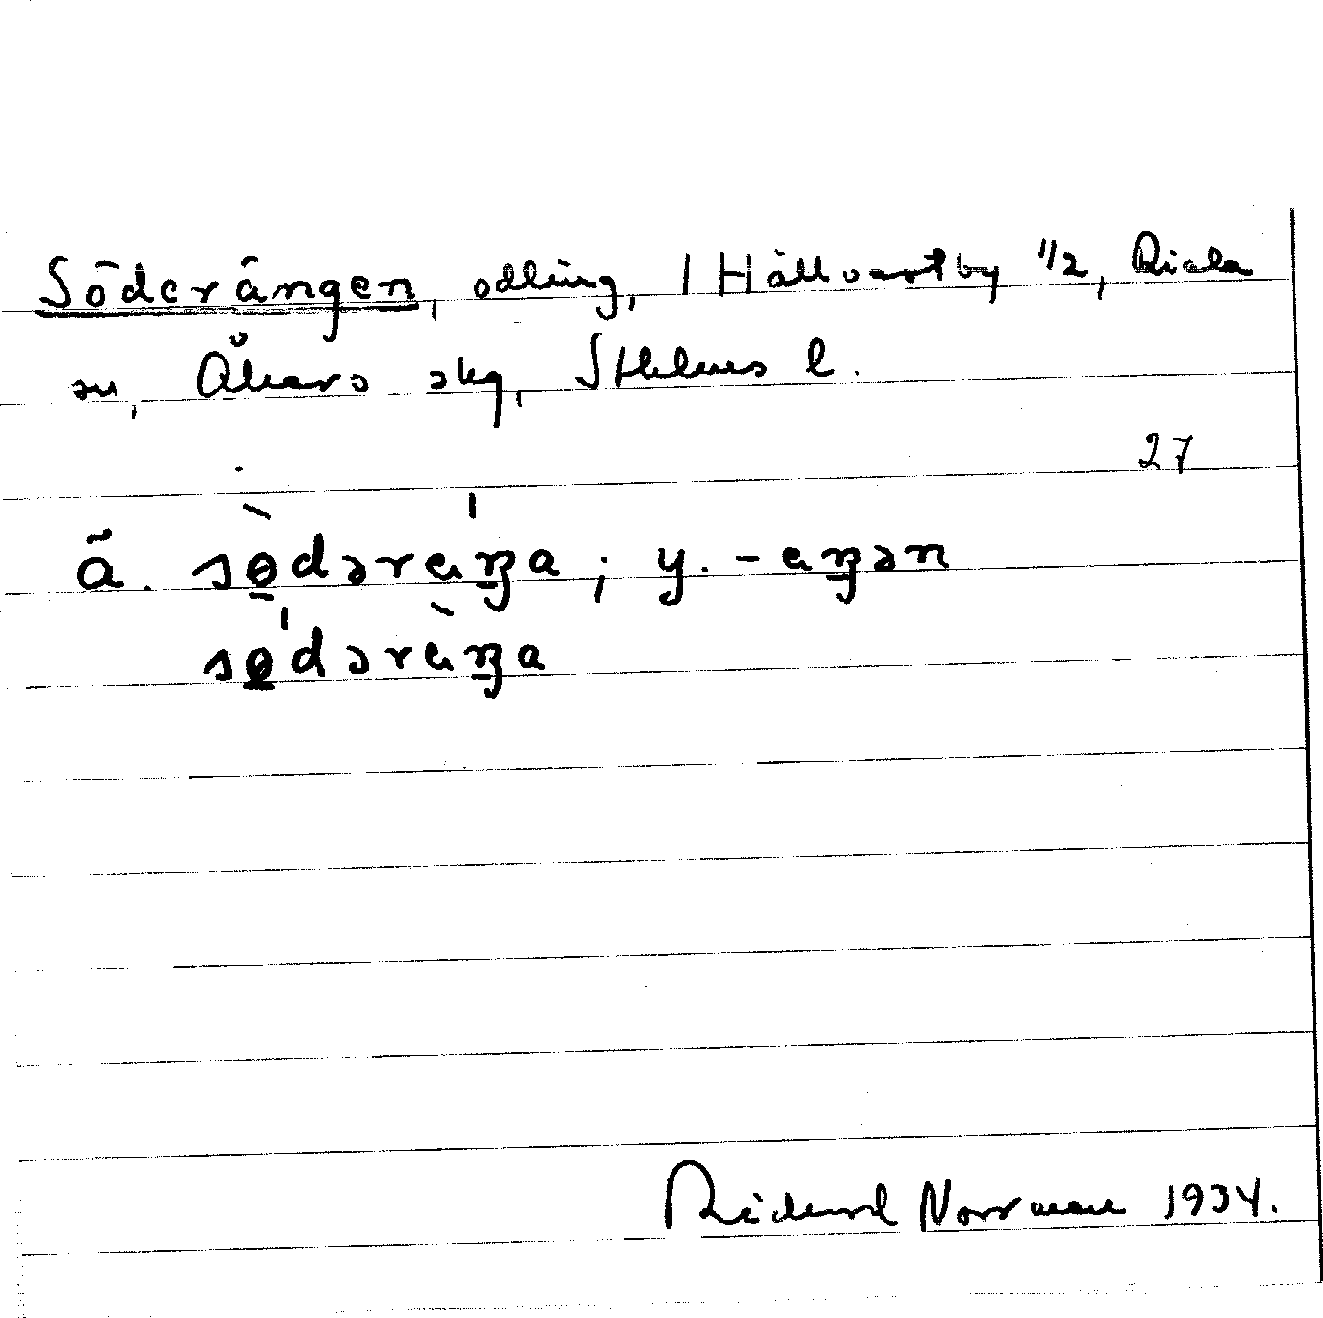 Söderängen, odling, 1 Hållvastby 1/2, Riala
sn, Åkers skg, Sthlms l.
27
ä. sødəreŋa; y. -eŋən
sødəreŋa
Rickard Norrman 1934.